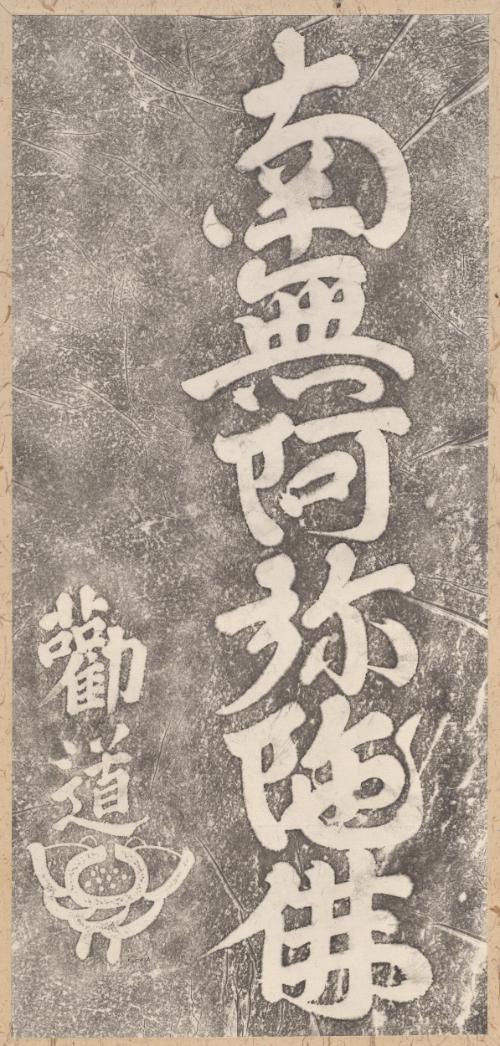 南無阿弥陀佛
勸道